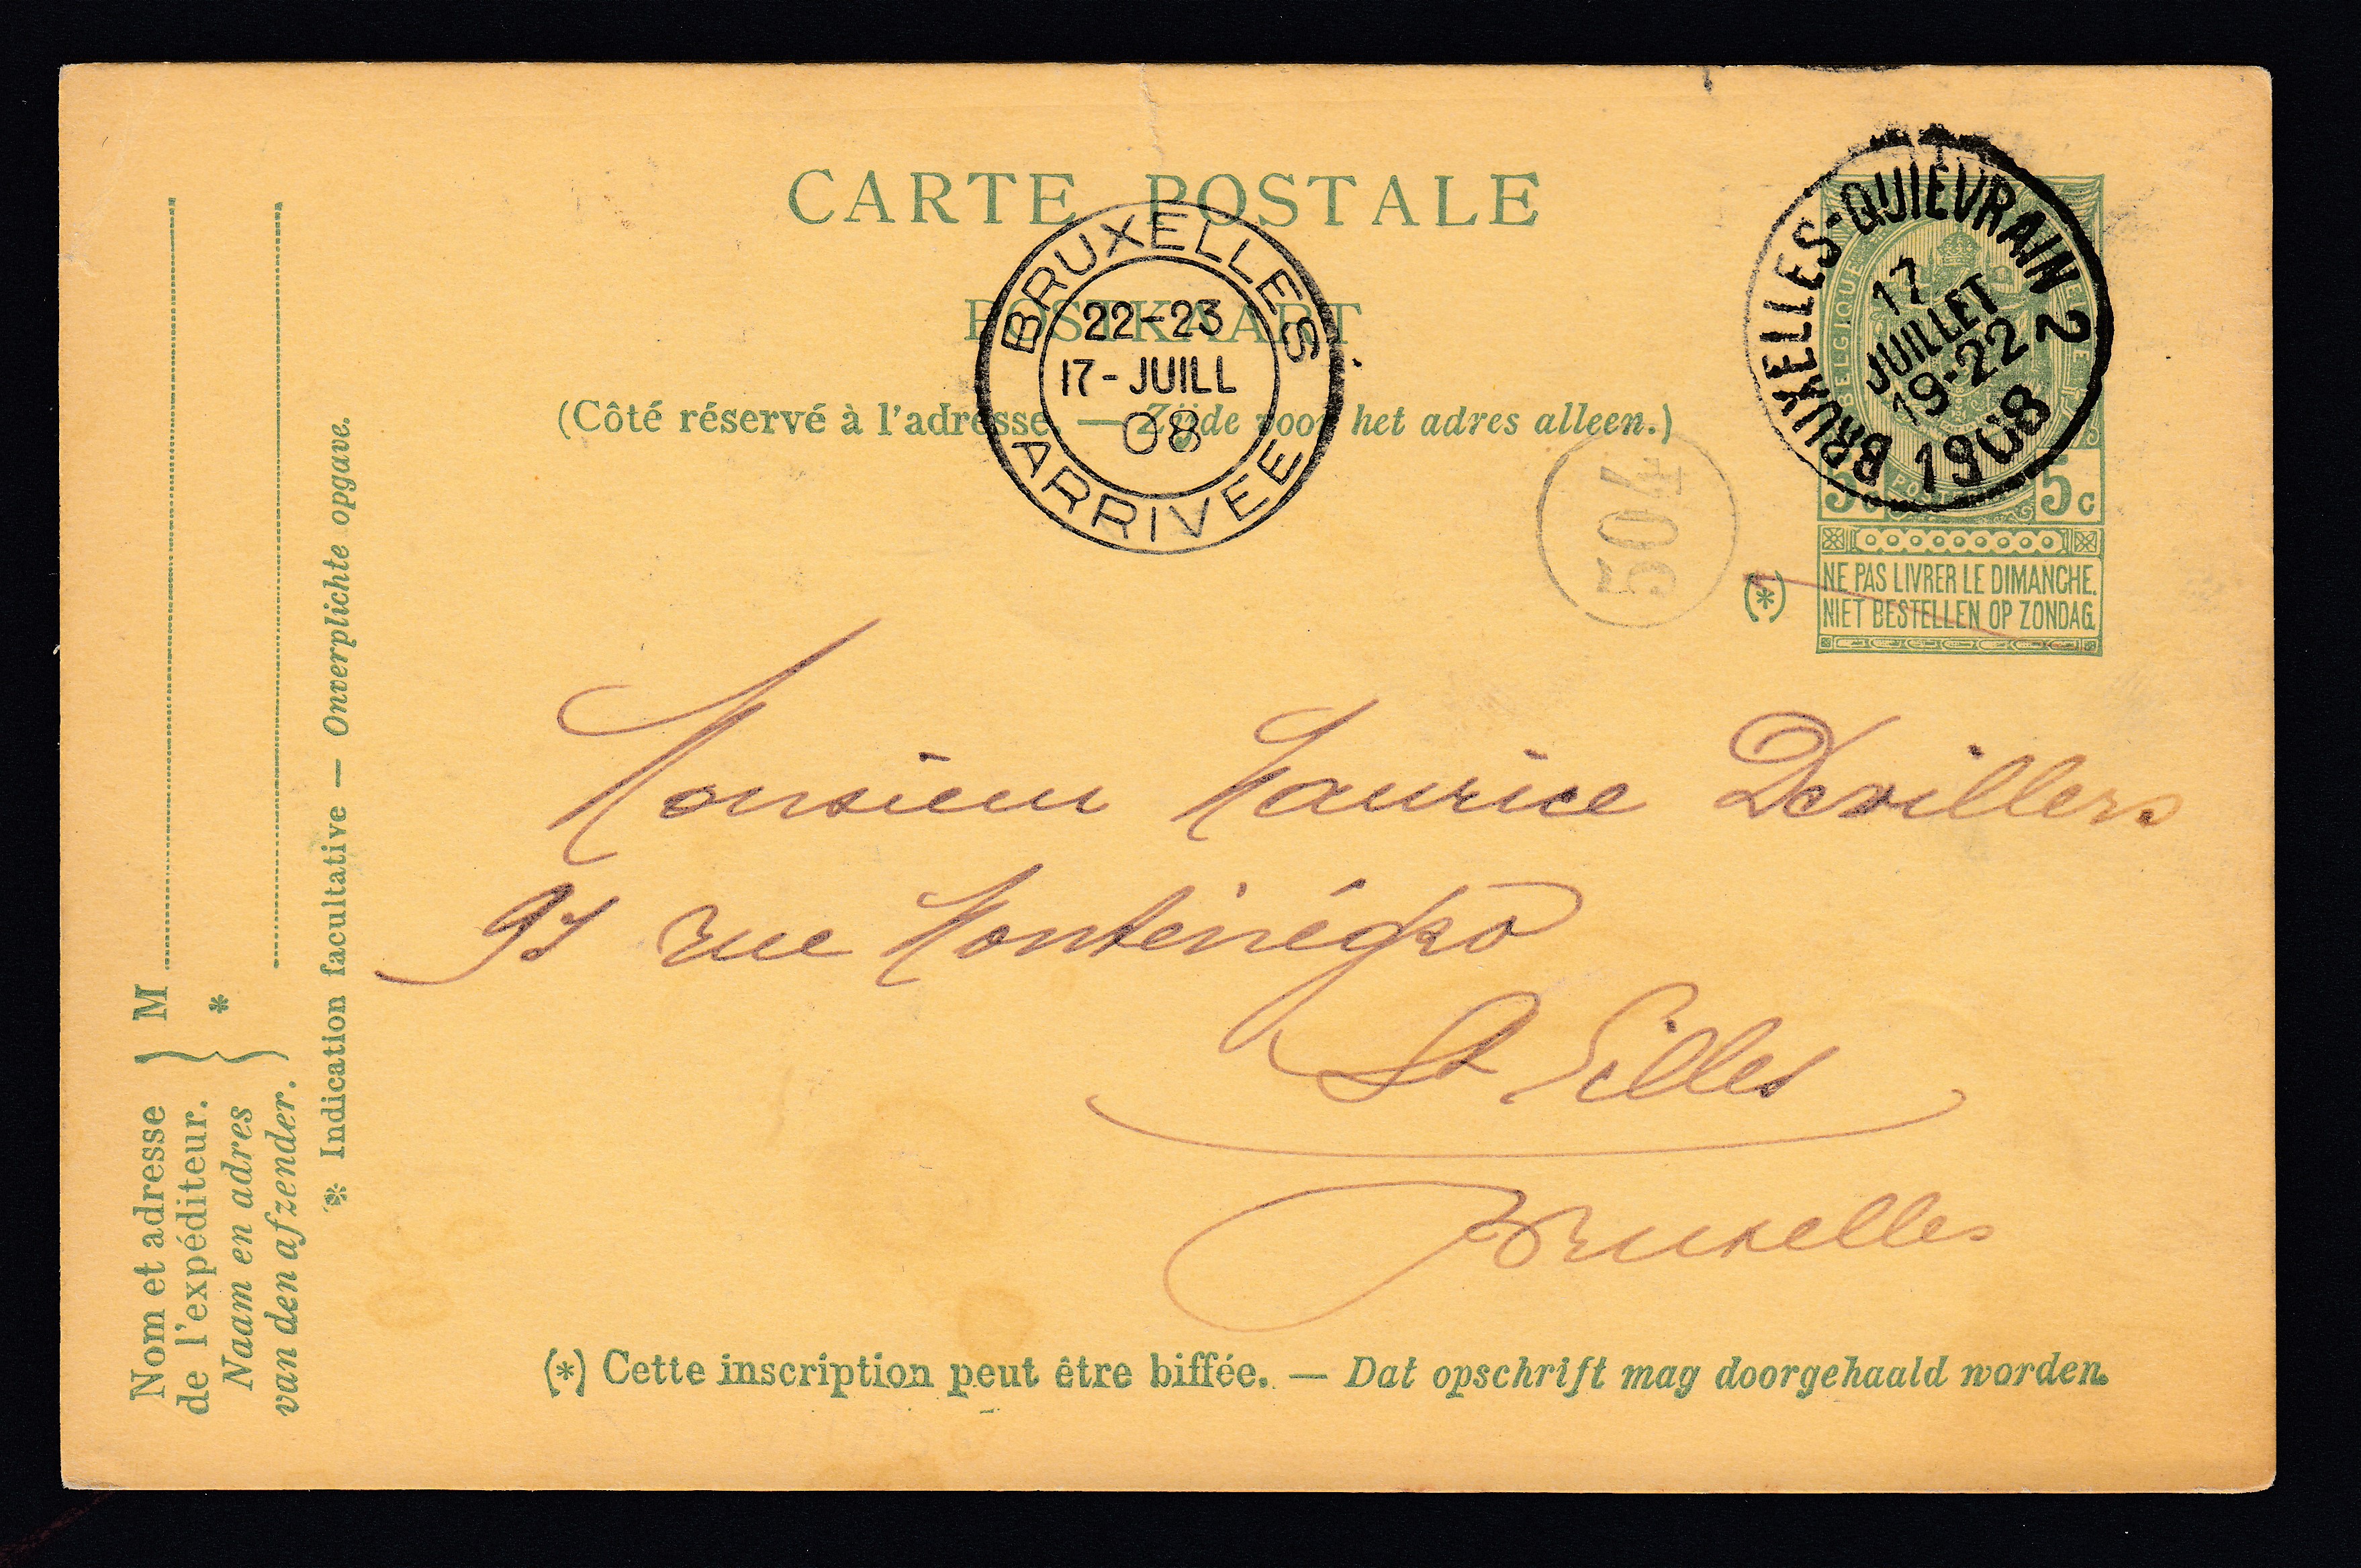 CARTE POSTALE
POSTKAART
(Côté réservé à l'adresse. — Zijde voor het adres alleen.)
BRUXELLES
22-23
17-JUILL
08
ARRIVEE
BRUXELLES-QUIEVRAIN 2
17
JUILLET
19-22
1908
BELGIQUE
5c 5c
NE PAS LIVRER LE DIMANCHE.
NIET BESTELLEN OP ZONDAG.
(*)
504
Monsieur Maurice Devillers
93 rue Monténégro
St Gilles
Bruxelles
(*) Cette inscription peut être biffée. — Dat opschrift mag doorgehaald worden.
Nom et adresse
de l'expéditeur.
Naam en adres
van den afzender.
M
*
* Indication facultative — Onverplichte opgave.